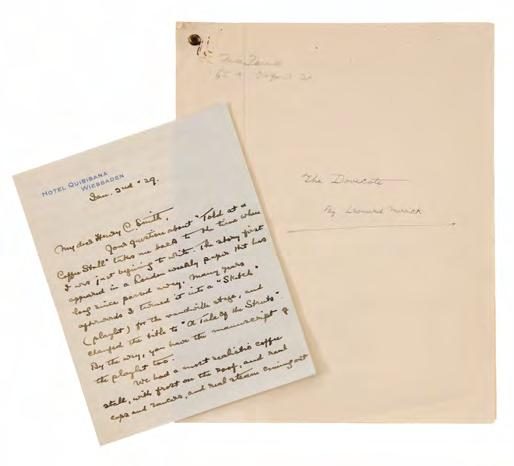 HOTEL QUISISANA
WIESBADEN
Jan. 2nd '29.
My dear Henry C. Smith,
Your question about "Told at a
Coffee Stall" takes me back to the time when
I was just beginning to write. The story first
appeared in a London weekly paper that has
long since passed away. Many years
afterwards I turned it into a "Sketch"
(playlet) for the vaudeville stage, and
changed the title to "A Tale of the Streets".
By the way, you have the manuscript of
the playlet too.
We had a most realistic coffee
stall, with frost on the roof, and real
cups and saucers, and real steam coming out
The Dovecote
By Leonard Merrick